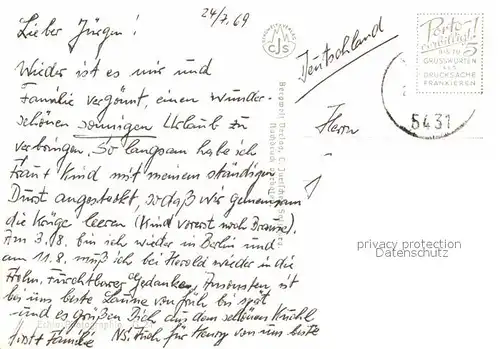 24/7.69
Lieber Jürgen!
Wieder ist es mir und
Familie vergönnt, einen wunder-
schönen sonnigen Urlaub zu
verbringen. So langsam habe ich
Frau + Kind mit meinem ständigen
Durst angesteckt, so daß wir gemeinsam
die Krüge leeren (Kind vorerst noch Brause).
Am 3.8. bin ich wieder in Berlin und
am 11.8. muß ich bei Herold wieder in die
Frohn, Furchtbarer Gedanken, Ansonsten ist
bis uns beste Laune von früh bis spät
und es grüßen Dich aus dem schönen
Familie NS. Auch für Henry von uns beste
Deutschland
Herrn
Porto-
ermäßigt!
5
BIS ZU
GRUSSWORTEN
ALS
DRUCKSACHE
FRANKIEREN
5431
privacy protection
Datenschutz